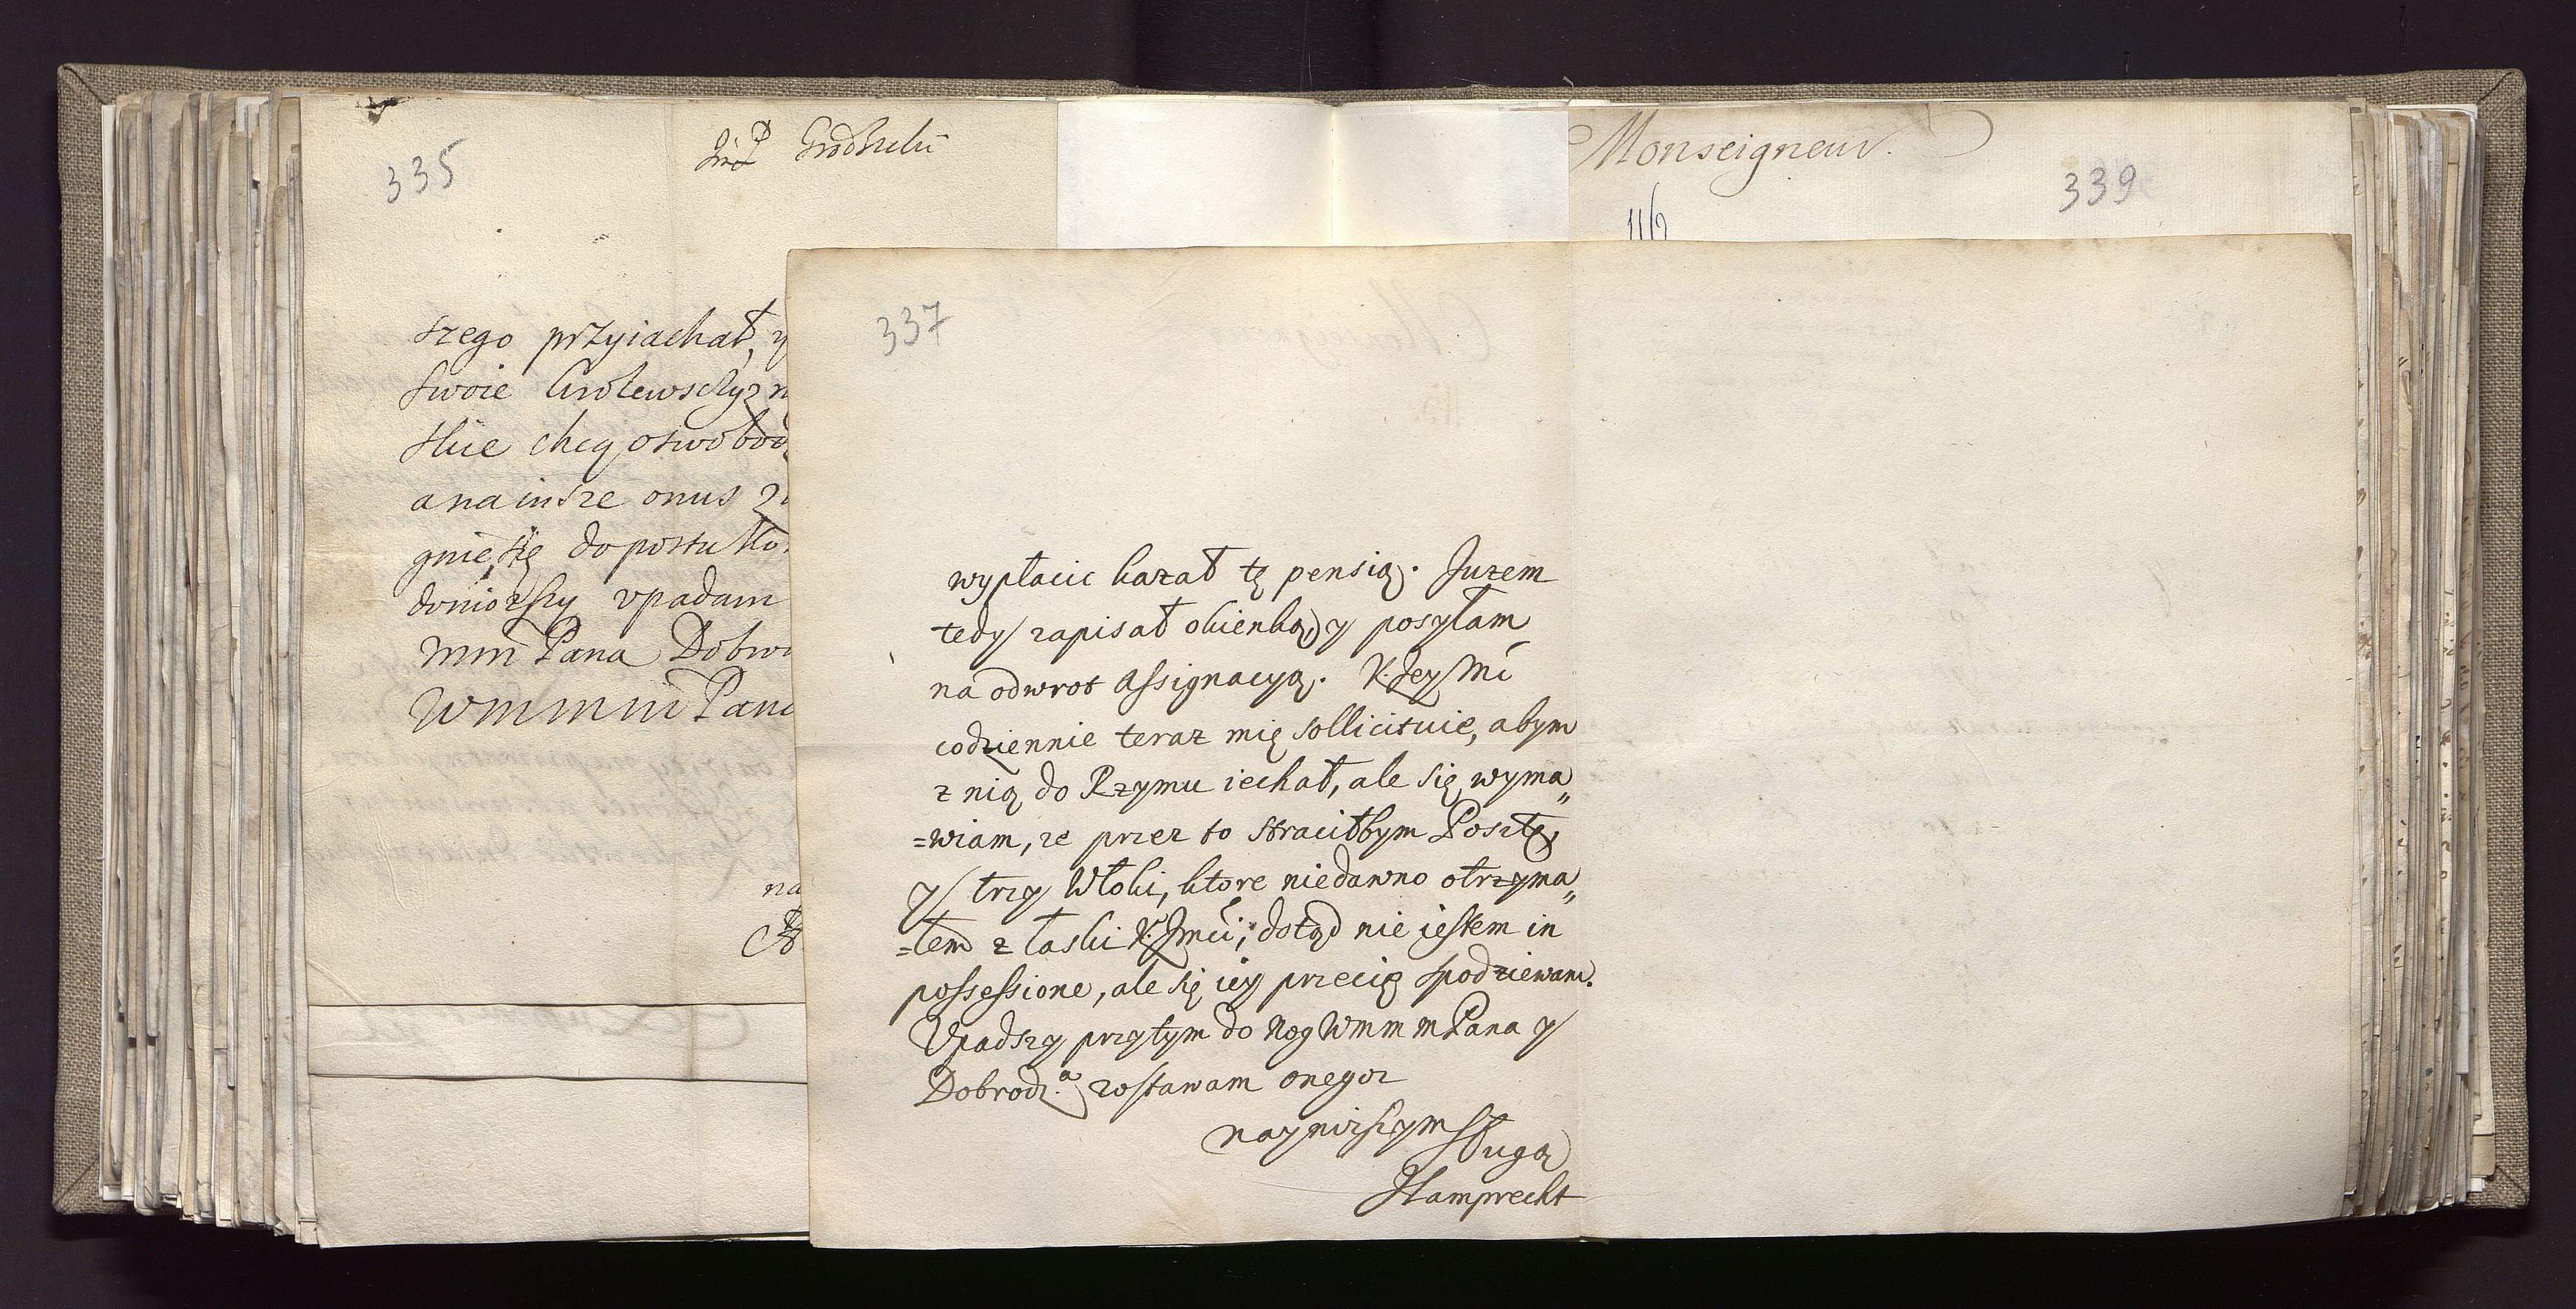 335
Jm̃P Grodzicki
szego przyiachał, y
swoie Krolewsczyzn
skie chcą oswobod
a na insze onus
gnie, się do postu
doniozszy vpadam
mm̃ Pana Dobro
Wmmm̃ Pana
na
Monseigneur.
339
116
337
wypłacic kazał tę pensią. Juzem
tedy zapisał okienko, y posyłam
na odwrot assignacyą. K. Jey Mć
codziennie teraz mię sollicituie, abym
z nią do Rzymu iechał, ale się wyma„
=wiam, ze przez to straciłbym Posztę,
y trzy Włoki, ktore niedawno otrzyma„
=łem z łaski K. Jmći; dotąd nie iestem in
possessione, ale się iey przecię spodziewam.
Vpadszy przytym do nog Wmmm Pana y
Dobrodz.ª zostawam onegoz
naynizszym Sługą
Hamprecht